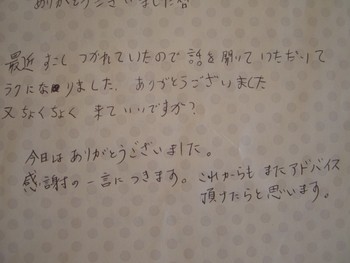 ありがとうございました
最近 すこし つかれていたので 話を聞いて いただいて
ラクになりました。 ありがとうございました
又 ちょくちょく 来ていいですか?
今日は ありがとうございました。
感謝の一言につきます。 これからも またアドバイス
頂けたらと思います。